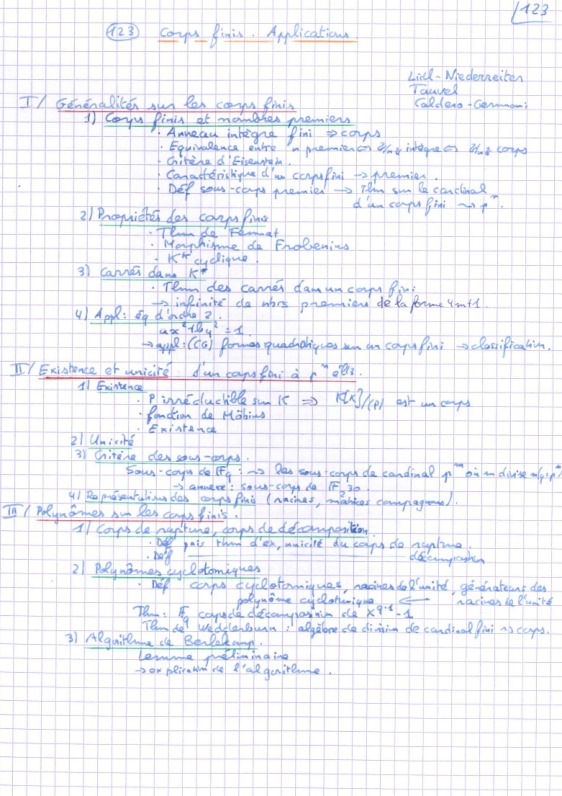 123
(123) Corps finis. Applications.
Lidl-Niederreiter
Tauvel
Caldero-Germoni
I/ Généralités sur les corps finis
1) Corps finis et nombres premiers
· Anneau intègre fini ⇒ corps
· Equivalence entre n premier ⇔ ℤ/nℤ intègre ⇔ ℤ/nℤ corps
· Critère d'Eisenstein.
· Caractéristique d'un corps fini → premier.
· Déf sous-corps premier → Thm sur le cardinal
d'un corps fini ⇝ pⁿ.
2) Propriétés des corps finis
· Thm de Fermat
· Morphisme de Frobenius
· K* cyclique.
3) Carrés dans K*
· Thm des carrés dans un corps fini
→ infinité de nbrs premiers de la forme 4m+1.
4) Appl: éq d'ordre 2.
ax²+by²=1.
→ appl: (CG) formes quadratiques sur un corps fini → classification.
II/ Existence et unicité d'un corps fini à pⁿ élts.
1) Existence
· P irréductible sur K ⇒ K[X]/(P) est un corps
· fonction de Möbius
· Existence
2) Unicité
3) Critère des sous-corps.
Sous-corps de F_q : ⇝ les sous-corps de cardinal pᵐ où m divise n (q=pⁿ)
→ annexe: sous-corps de F 30.
4) Représentations des corps finis (racines, matrices compagnons).
III/ Polynômes sur les corps finis.
1) Corps de rupture, corps de décomposition.
· Déf puis thm d'ex, unicité du corps de rupture.
· Déf — décomposition
2) Polynômes cyclotomiques
· Déf corps cyclotomiques, racines de l'unité, générateurs des
polynôme cyclotomique ← racines de l'unité
Thm: F_q corps de décomposition de X^{q-1}-1
Thm de Wedderburn: algèbre de division de cardinal fini ⇝ corps.
3) Algorithme de Berlekamp.
Lemme préliminaire
→ explication de l'algorithme.